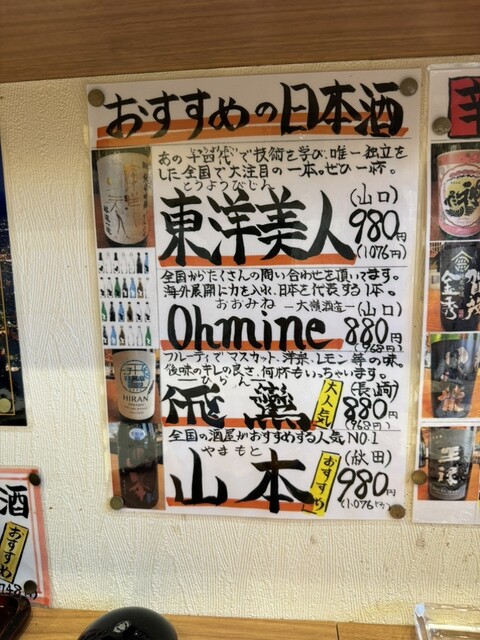 おすすめの日本酒
あの十四代で技術を学び、唯一独立を
した全国で大注目の一本。ぜひ一杯。
とうようびじん
東洋美人
(山口)
980円
(1076円)
全国からたくさんの問い合わせを頂いてます。
海外展開に力を入れ、日本を代表する1杯。
おおみね
―大嶺酒造―(山口)
Ohmine
880円
(968円)
フルーティでマスカット、洋梨、レモン等の味。
後味のキレの良さ、何杯もいっちゃいます。
ひらん
飛鸞
大人気
(長崎)
880円
(968円)
HIRAN
全国の酒屋がおすすめする人気NO.1
やまもと
山本
おすすめ
(秋田)
980円
(1,076円)
酒
おすすめ